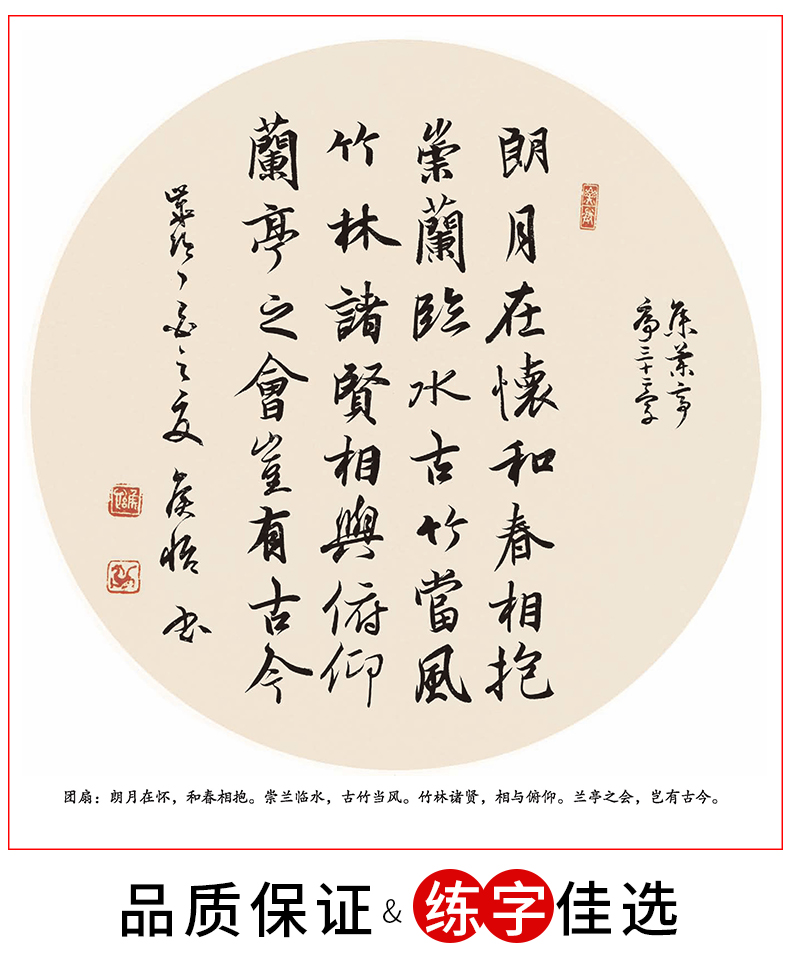 集蘭亭
序三十二字
朗月在懷和春相抱
崇蘭臨水古竹當風
竹林諸賢相與俯仰
蘭亭之會豈有古今
丁酉之夏 書
团扇：朗月在怀，和春相抱。崇兰临水，古竹当风。竹林诸贤，相与俯仰。兰亭之会，岂有古今。
品质保证&练字佳选